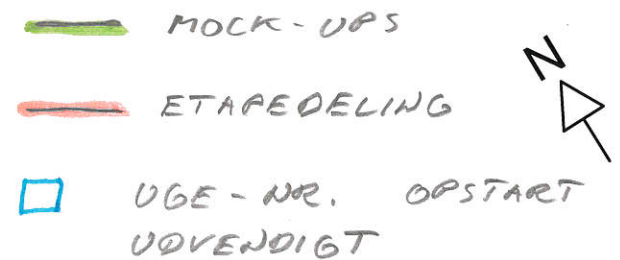 MOCK-UPS
N
ETAPEDELING
UGE-NR. OPSTART
UDVENDIGT